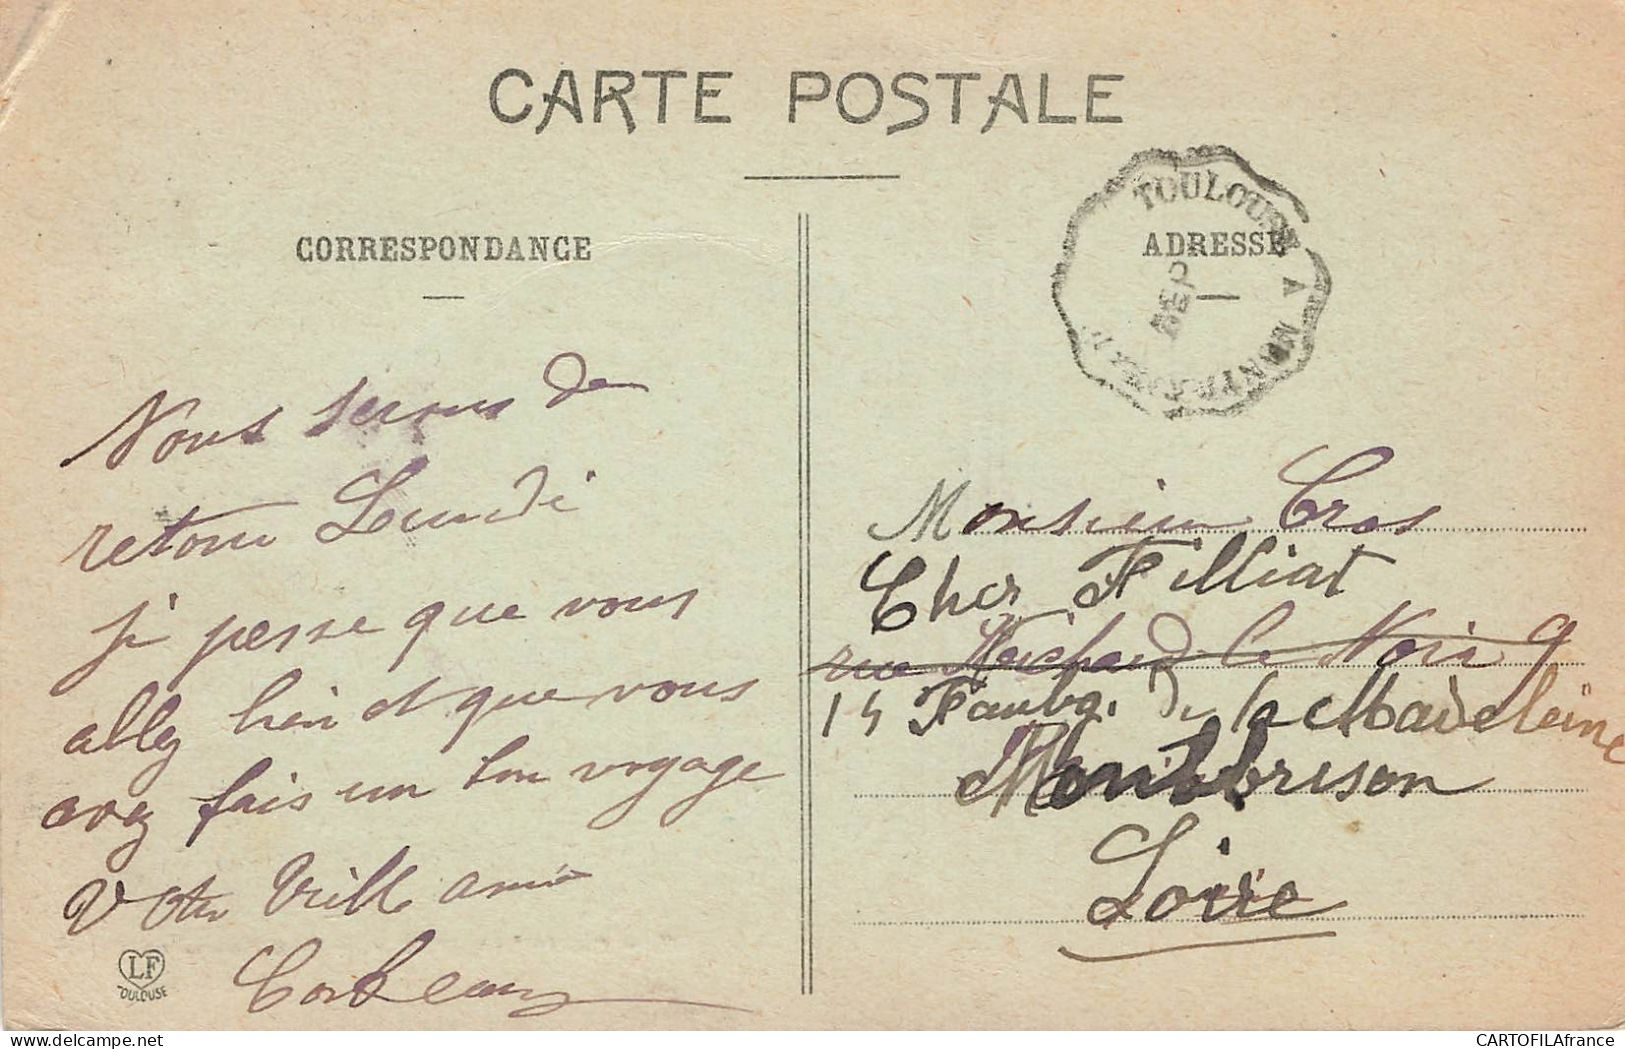 CARTE POSTALE
CORRESPONDANCE
Nous serons de
retour Lundi
je pense que vous
allez bien et que vous
avez fais un bon voyage
Votre Vielle amie
Corbeau
LF
TOULOUSE
TOULOUSE A
ADRESSE
Monsieur Cros
Chez Filliat
rue Richard le Noir 9
15 Faubg. De la Madeleine
Montbrison
Loire
delcampe.net
CARTOFILAfrance